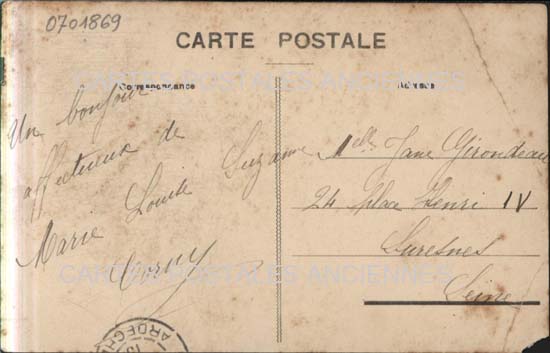 0701869
CARTE POSTALE
Correspondance
Adresse
CARTES POSTALES ANCIENNES
Un bonjour
affectueux de
Marie Louise Suzanne
Melle Jane Girondeau
24 place Henri IV
Suresnes
Seine
CARTES POSTALES ANCIENNES
ARDECHE